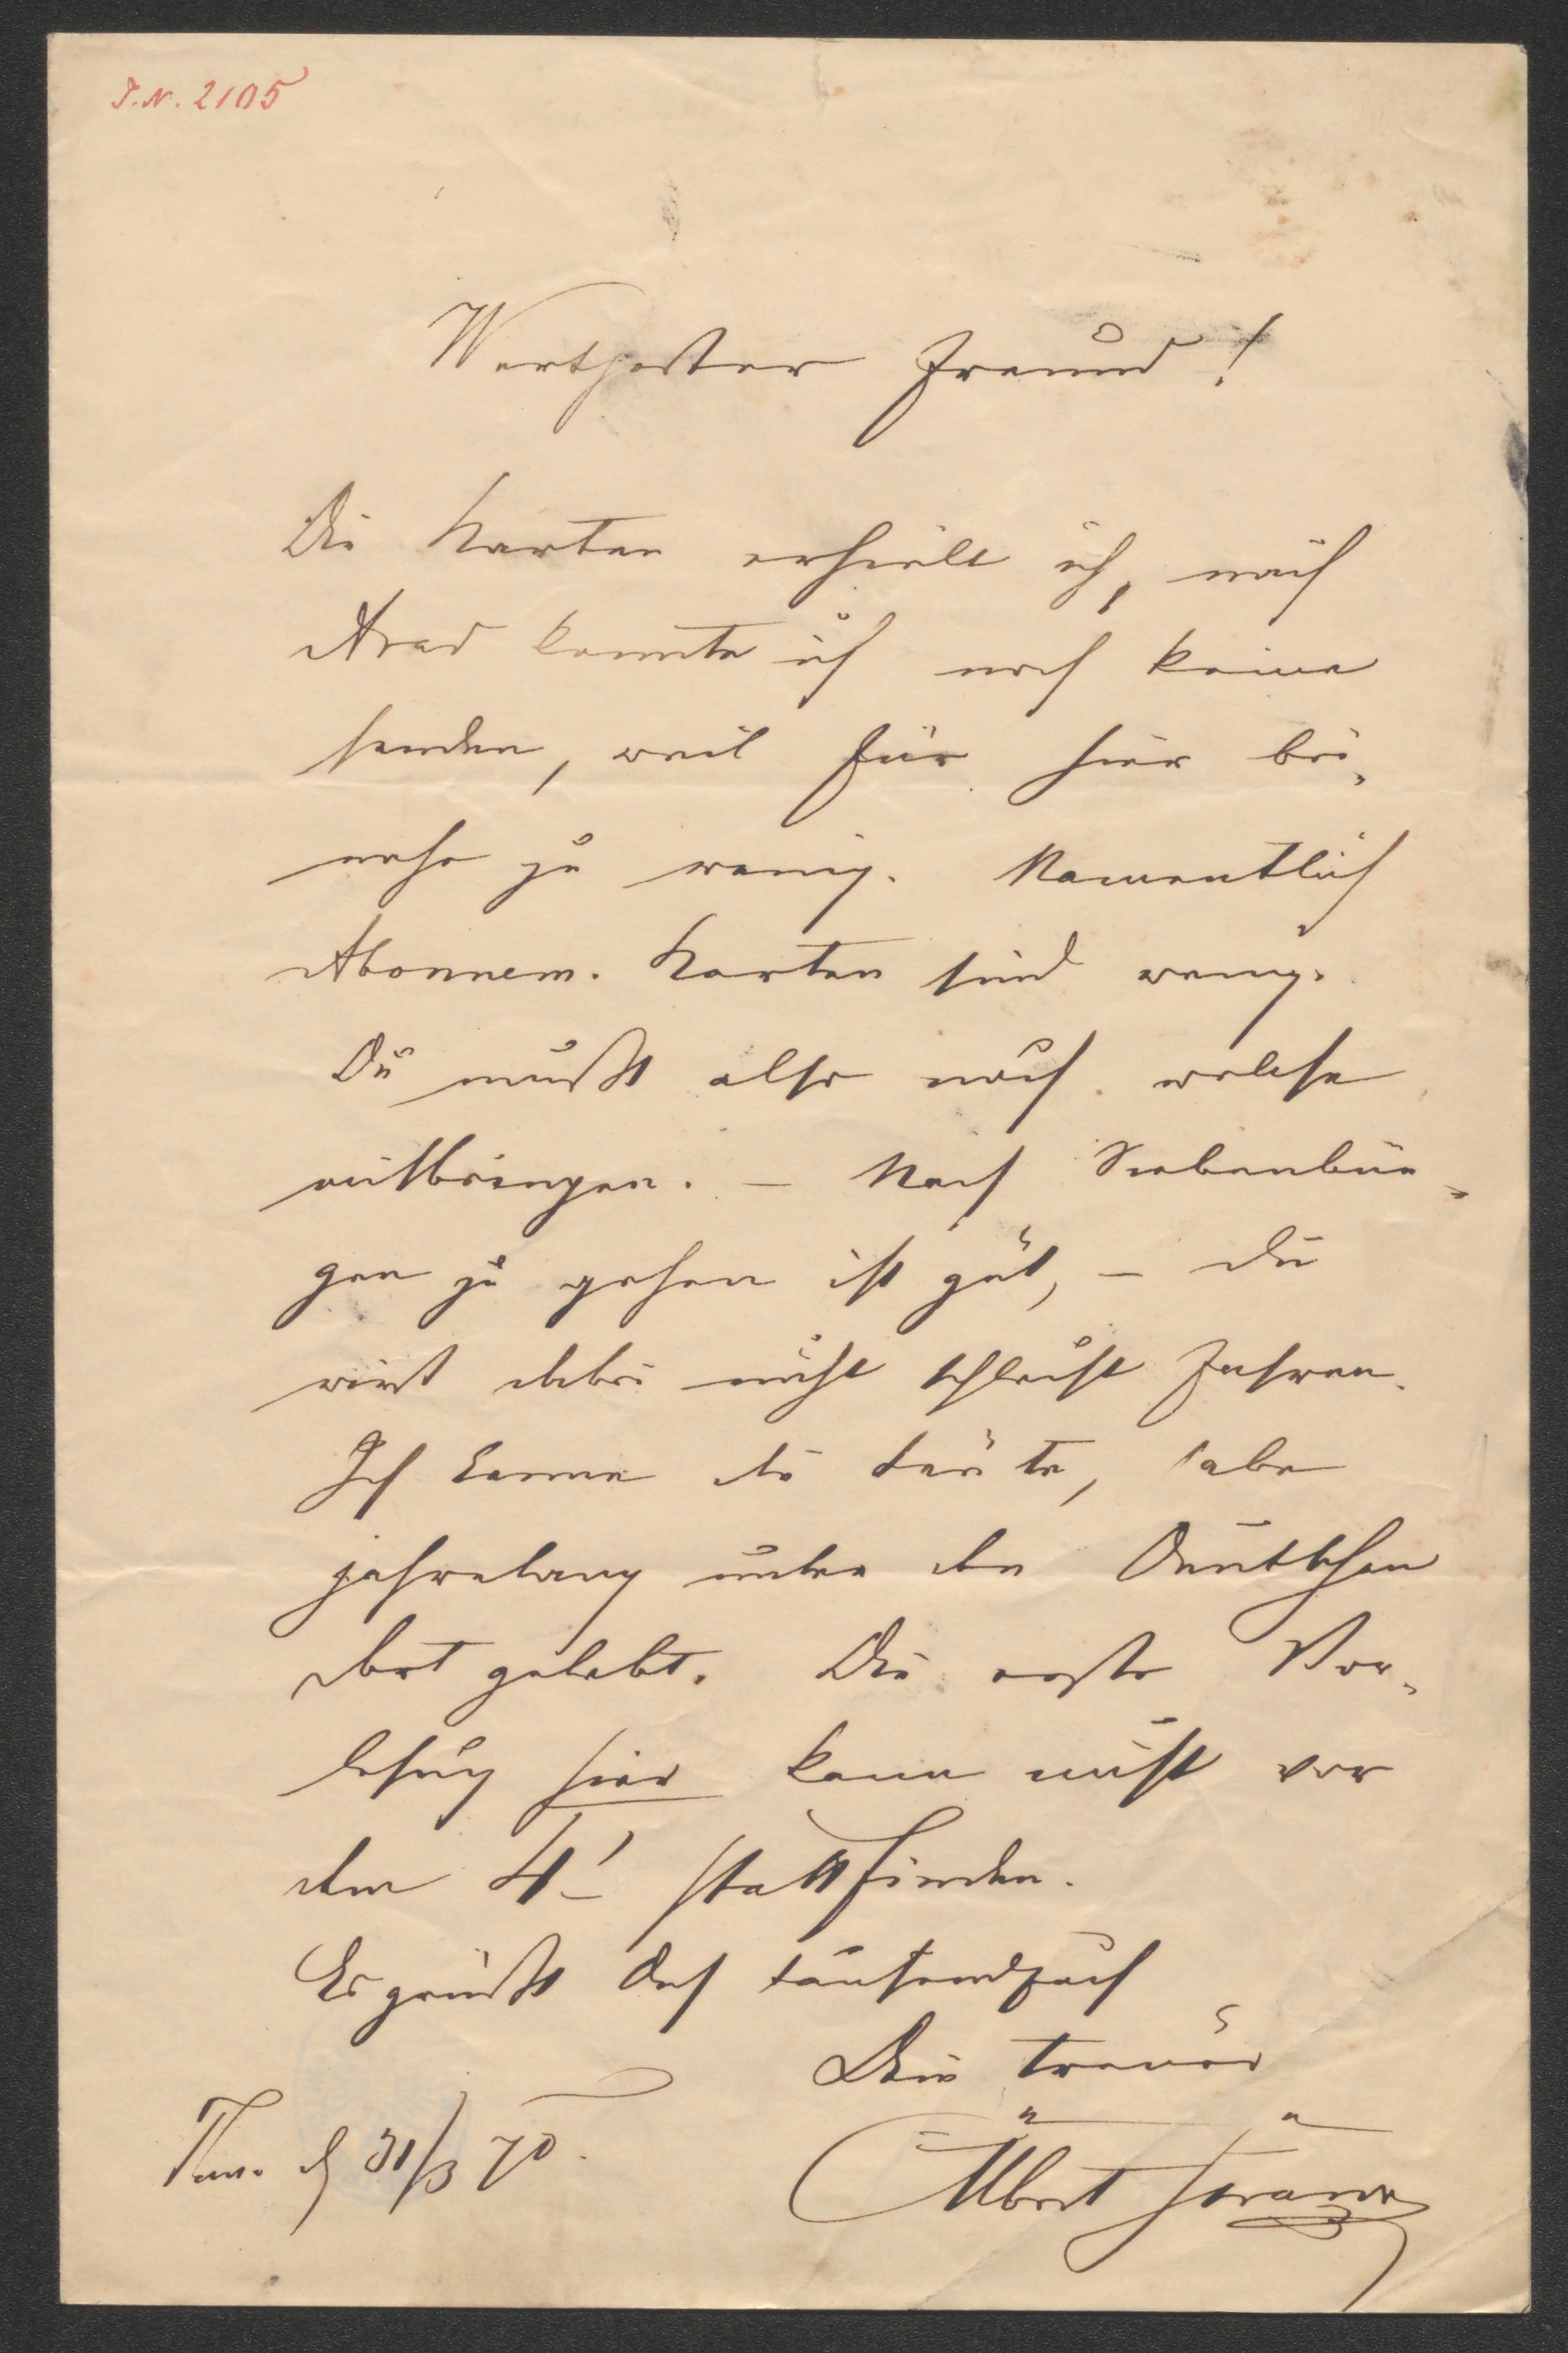 I.N. 2105
Werthester Freund!
Die Karten erhielt ich, nach
Arad konnte ich noch keine
senden, weil für hier bei-
nahe zu wenig. Namentlich
Abonnem. Karten sind wenig.
Du mußt also noch welche
mitbringen. – Nach Siebenbür-
gen zu gehen ist gut, – du
wirst dabei nicht schlecht fahren.
Ich kenne die Leute, habe
jahrelang unter den Deutschen
dort gelebt. Die erste Vor-
lesung hier kann nicht vor
dem 4! stattfinden.
Es grüßt Dich tausendfach
Dein treuer
Tem. d 31/3 70.
Albert